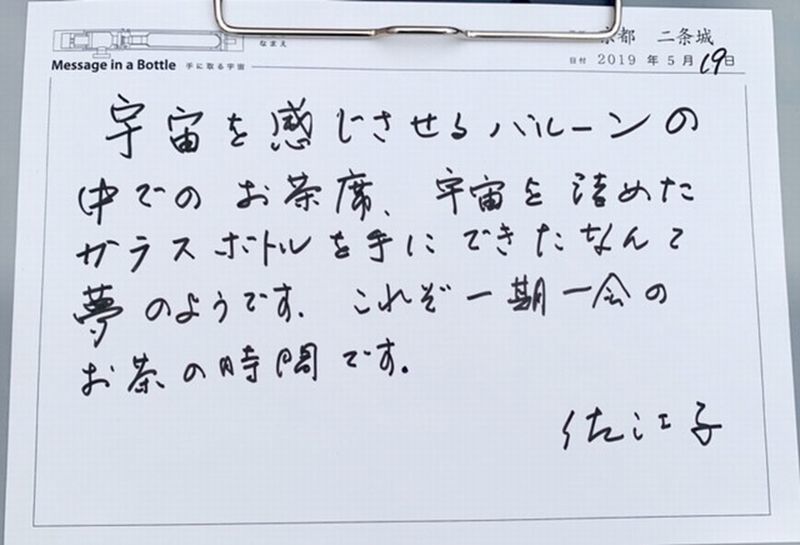 なまえ
京都 二条城
Message in a Bottle 手に取る宇宙
日付 2019 年 5 月 19 日
宇宙を感じさせるバルーンの
中でのお茶席、宇宙を詰めた
ガラスボトルを手にできたなんて
夢のようです. これぞ一期一会の
お茶の時間です。
佐江子